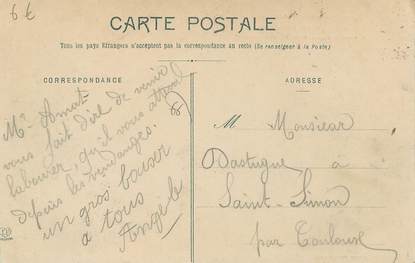 6 €
CARTE POSTALE
Tous les pays Etrangers n'acceptent pas la correspondance au recto (Se renseigner à la Poste)
CORRESPONDANCE
Mr Amat
vous fait dire de venir
labourer, qu'il vous attend
depuis les vendanges.
un gros baiser
à tous
Angèle
ADRESSE
M Monsieur
Dastugue à
Saint-Simon
par Toulouse